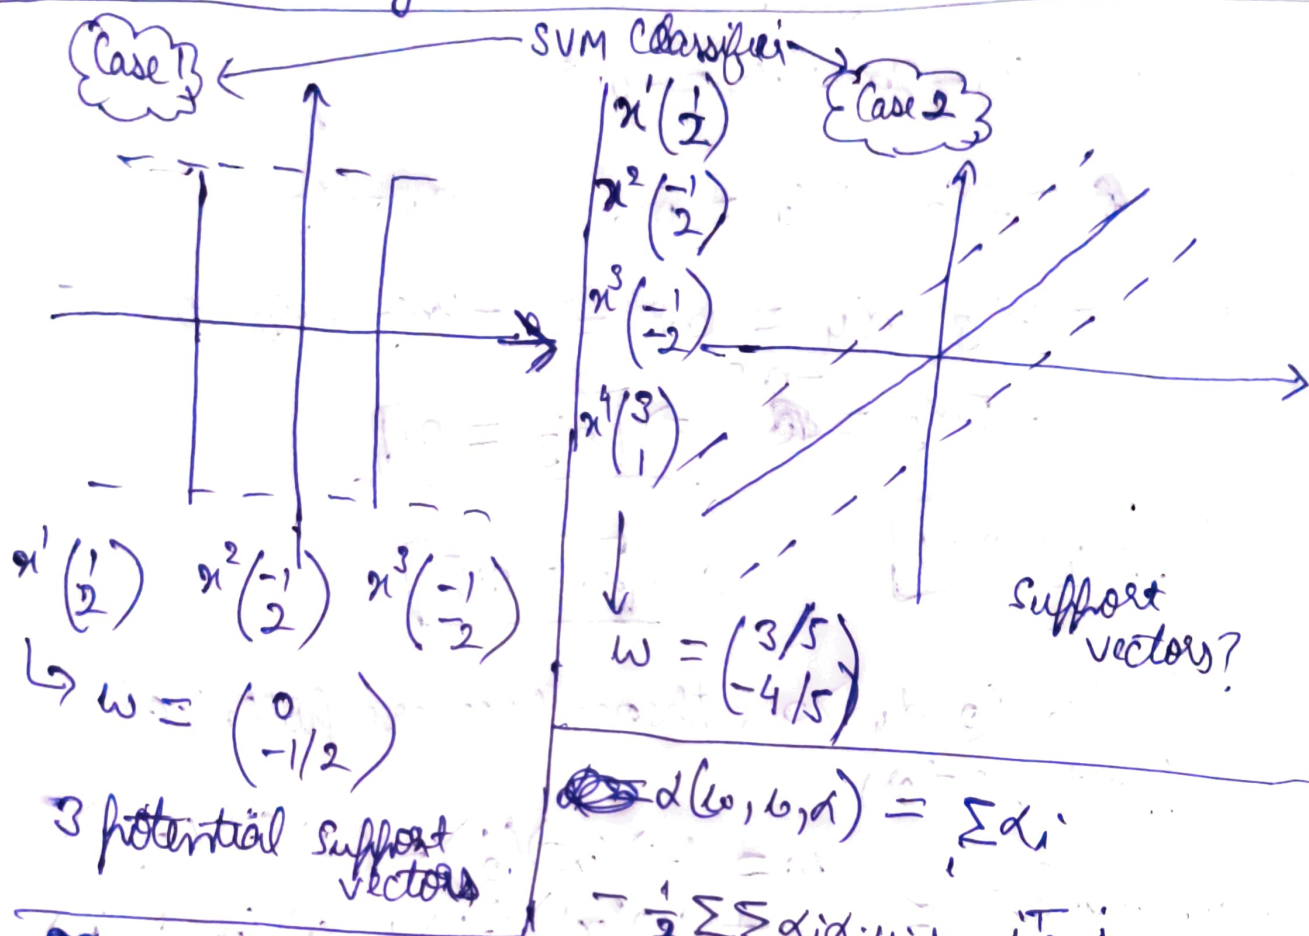 SVM Classifier
Case 1
x¹ (1 2)
x² (-1 2)
x³ (-1 -2)
↳ w = (0 -1/2)
3 potential support
vectors
Case 2
x¹ (1 2)
x² (-1 2)
x³ (-1 -2)
x⁴ (3 1)
w = (3/5 -4/5)
support
vectors?
α(w, b, α) = Σ αᵢ
i
- 1/2 Σ Σ